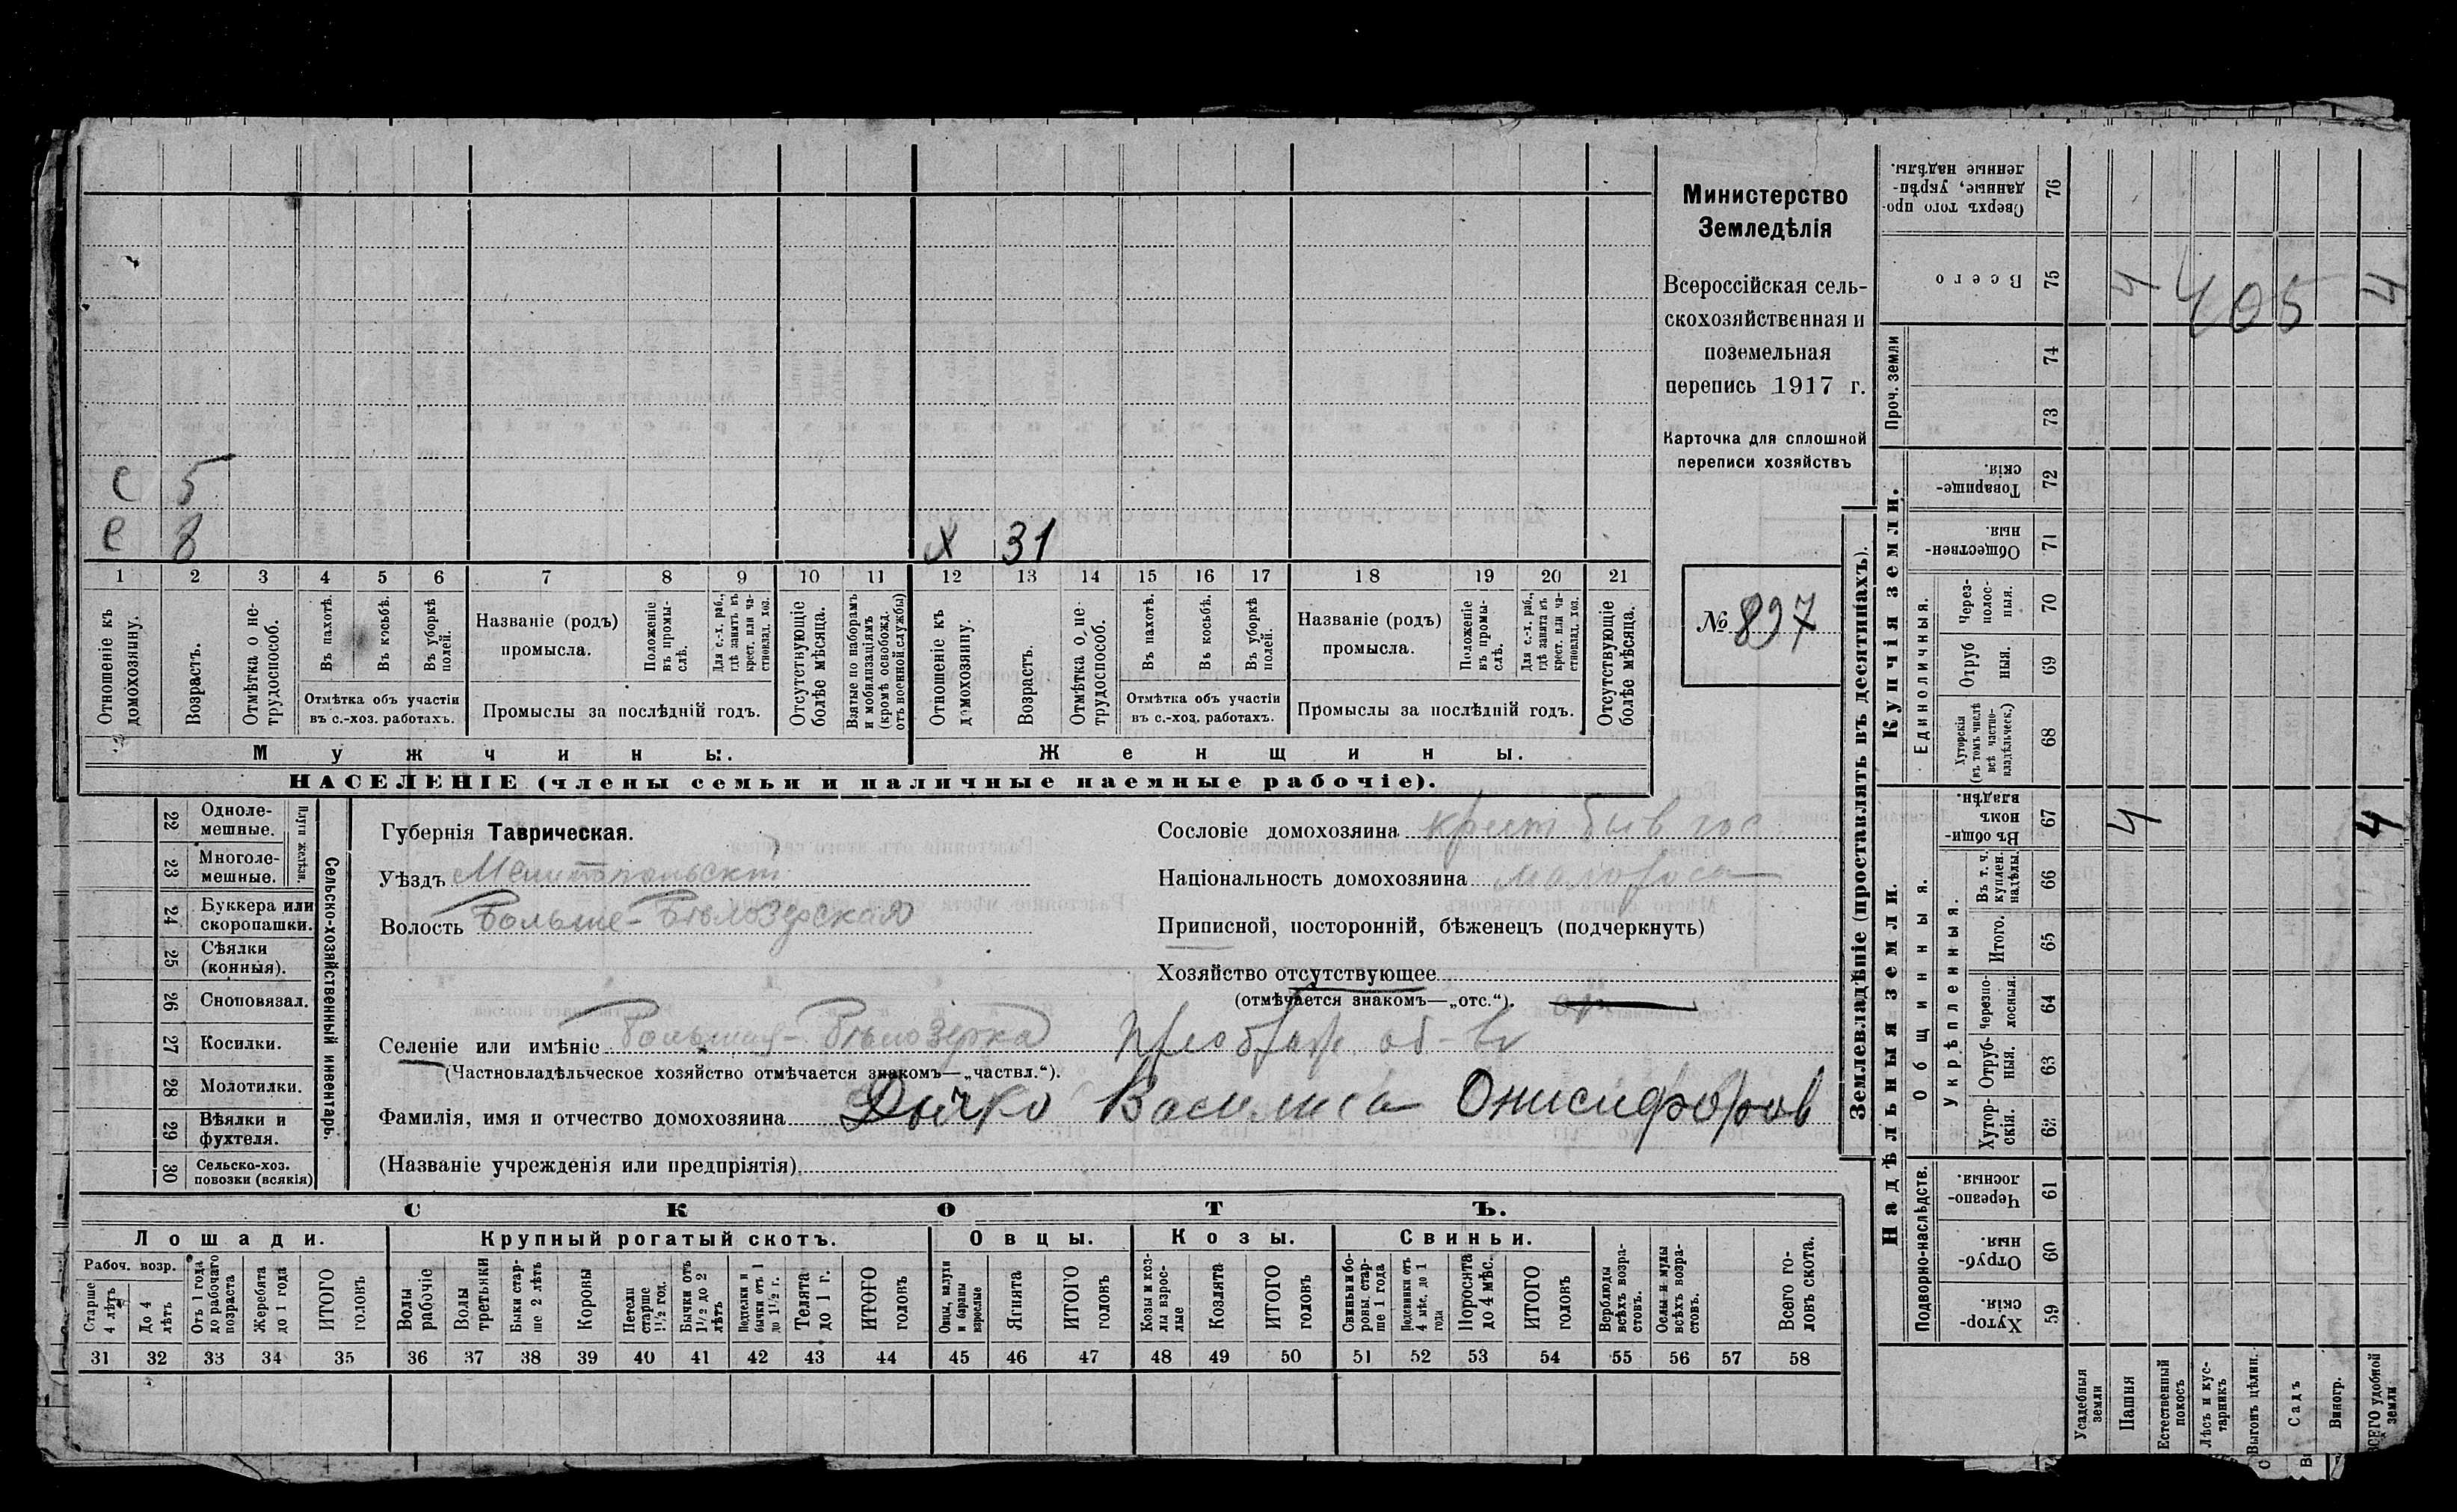 Министерство
Земледѣлія
Всероссійская сель-
скохозяйственная и
поземельная
перепись 1917 г.
Карточка для сплошной
переписи хозяйствъ
№ 897
с 5
с 8
х 31
1 2 3 4 5 6 7 8 9 10 11 12 13 14 15 16 17 18 19 20 21
Отношеніе къ домохозяину.
Возрастъ.
Отмѣтка о не-трудоспособ.
Въ пахотѣ.
Въ косьбѣ.
Въ уборкѣ полей.
Отмѣтка объ участіи
въ с.-хоз. работахъ.
Названіе (родъ)
промысла.
Положеніе въ промы-слѣ.
Для с.-х. раб., гдѣ занятъ въ крест. или ча-стновлад. хоз.
Промыслы за послѣдній годъ.
Отсутствующіе болѣе мѣсяца.
Взятые по наборамъ и мобилизаціямъ (кромѣ освобожд. отъ военной службы)
Отношеніе къ домохозяину.
Возрастъ.
Отмѣтка о не-трудоспособ.
Въ пахотѣ.
Въ косьбѣ.
Въ уборкѣ полей.
Отмѣтка объ участіи
въ с.-хоз. работахъ.
Названіе (родъ)
промысла.
Положеніе въ промы-слѣ.
Для с.-х. раб., гдѣ занята въ крест. или ча-стновлад. хоз.
Промыслы за послѣдній годъ.
Отсутствующіе болѣе мѣсяца.
Мужчины.
Женщины.
НАСЕЛЕНІЕ (члены семьи и наличные наемные рабочіе).
22 Одноле-мешные.
23 Многоле-мешные.
Плуги желѣзн.
24 Буккера или скоропашки.
25 Сѣялки (конныя).
26 Сноповязал.
27 Косилки.
28 Молотилки.
29 Вѣялки и фухтеля.
30 Сельско-хоз. повозки (всякія)
Сельско-хозяйственный инвентарь.
Губернія Таврическая.
Уѣздъ Мелитопольскій
Волость Больше-Бѣлозерская
Сословіе домохозяина крест быв гос
Національность домохозяина малоросса
Приписной, посторонній, бѣженецъ (подчеркнуть)
Хозяйство отсутствующее
(отмѣчается знакомъ—„отс.“).
Селеніе или имѣніе Большая-Бѣлозерка Преображ. об-во
(Частновладѣльческое хозяйство отмѣчается знакомъ—„частвл.“).
Фамилія, имя и отчество домохозяина Дычко Василиса Онисифоров
(Названіе учрежденія или предпріятія)
СКОТЪ.
Лошади. Крупный рогатый скотъ. Овцы. Козы. Свиньи.
Рабоч. возр.
Старше 4 лѣтъ
До 4 лѣтъ
Отъ 1 года до рабочаго возраста
Жеребята до 1 года
ИТОГО головъ
Волы рабочіе
Волы третьяки
Быки стар-ше 2 лѣтъ
Коровы
Нетели старше 1½ год.
Бычки отъ 1½ до 2 лѣтъ
Нетелки и бычки отъ 1 до 1½ г.
Телята до 1 г.
ИТОГО головъ
Овцы, валухи и бараны взрослые
Ягнята
ИТОГО головъ
Козы и коз-лы взрос-лые
Козлята
ИТОГО головъ
Свиньи и бо-ровы, стар-ше 1 года
Подсвинки отъ 4 мѣс. до 1 года
Поросята до 4 мѣс.
ИТОГО головъ
Верблюды всѣхъ возра-стовъ.
Ослы и мулы всѣхъ возра-стовъ.
Всего го-ловъ скота.
31 32 33 34 35 36 37 38 39 40 41 42 43 44 45 46 47 48 49 50 51 52 53 54 55 56 57 58
Землевладѣніе (проставлять въ десятинахъ).
Сверхъ того про-данные, укрѣп-ленные надѣлы. 76
Всего 75 4 405 4
Проч. земли 74
73
Купчія земли.
Товарище-скія. 72
Обществен-ныя. 71
Единоличныя.
Через-полос-ныя. 70
Отруб ныя. 69
Хуторскія (въ томъ числѣ всѣ частно-владѣльческ.) 68
Надѣльныя земли.
Общинныя.
Въ общи-номъ владѣн. 67 4 4
Укрѣпленныя.
Въ т. ч. куплен. надѣлы. 66
Итого. 65
Черезпо-лосныя. 64
Отруб-ныя. 63
Хутор-скія. 62
Подворно-наслѣдств.
Черезпо-лосныя. 61
Отруб-ныя. 60
Хутор-скія. 59
Усадебныя земли
Пашня
Естественный покосъ
Лѣсъ и кус-тарникъ
Выгонъ цѣлин.
Садъ
Виногр.
ВСЕГО удобной земли